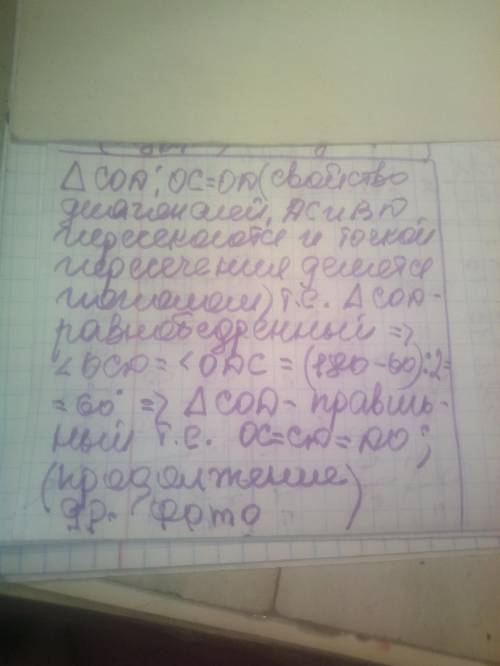 △ COD: OC=OD (свойство
диагоналей, AC и BD
пересекаются и точкой
пересечения делятся
пополам) т.е. △ COD-
равнобедренный =>
<OCD = <ODC = (180-60):2=
= 60° => △ COD - правиль-
ный т.е. OC=CD=DO;
(продолжение
др. фото)